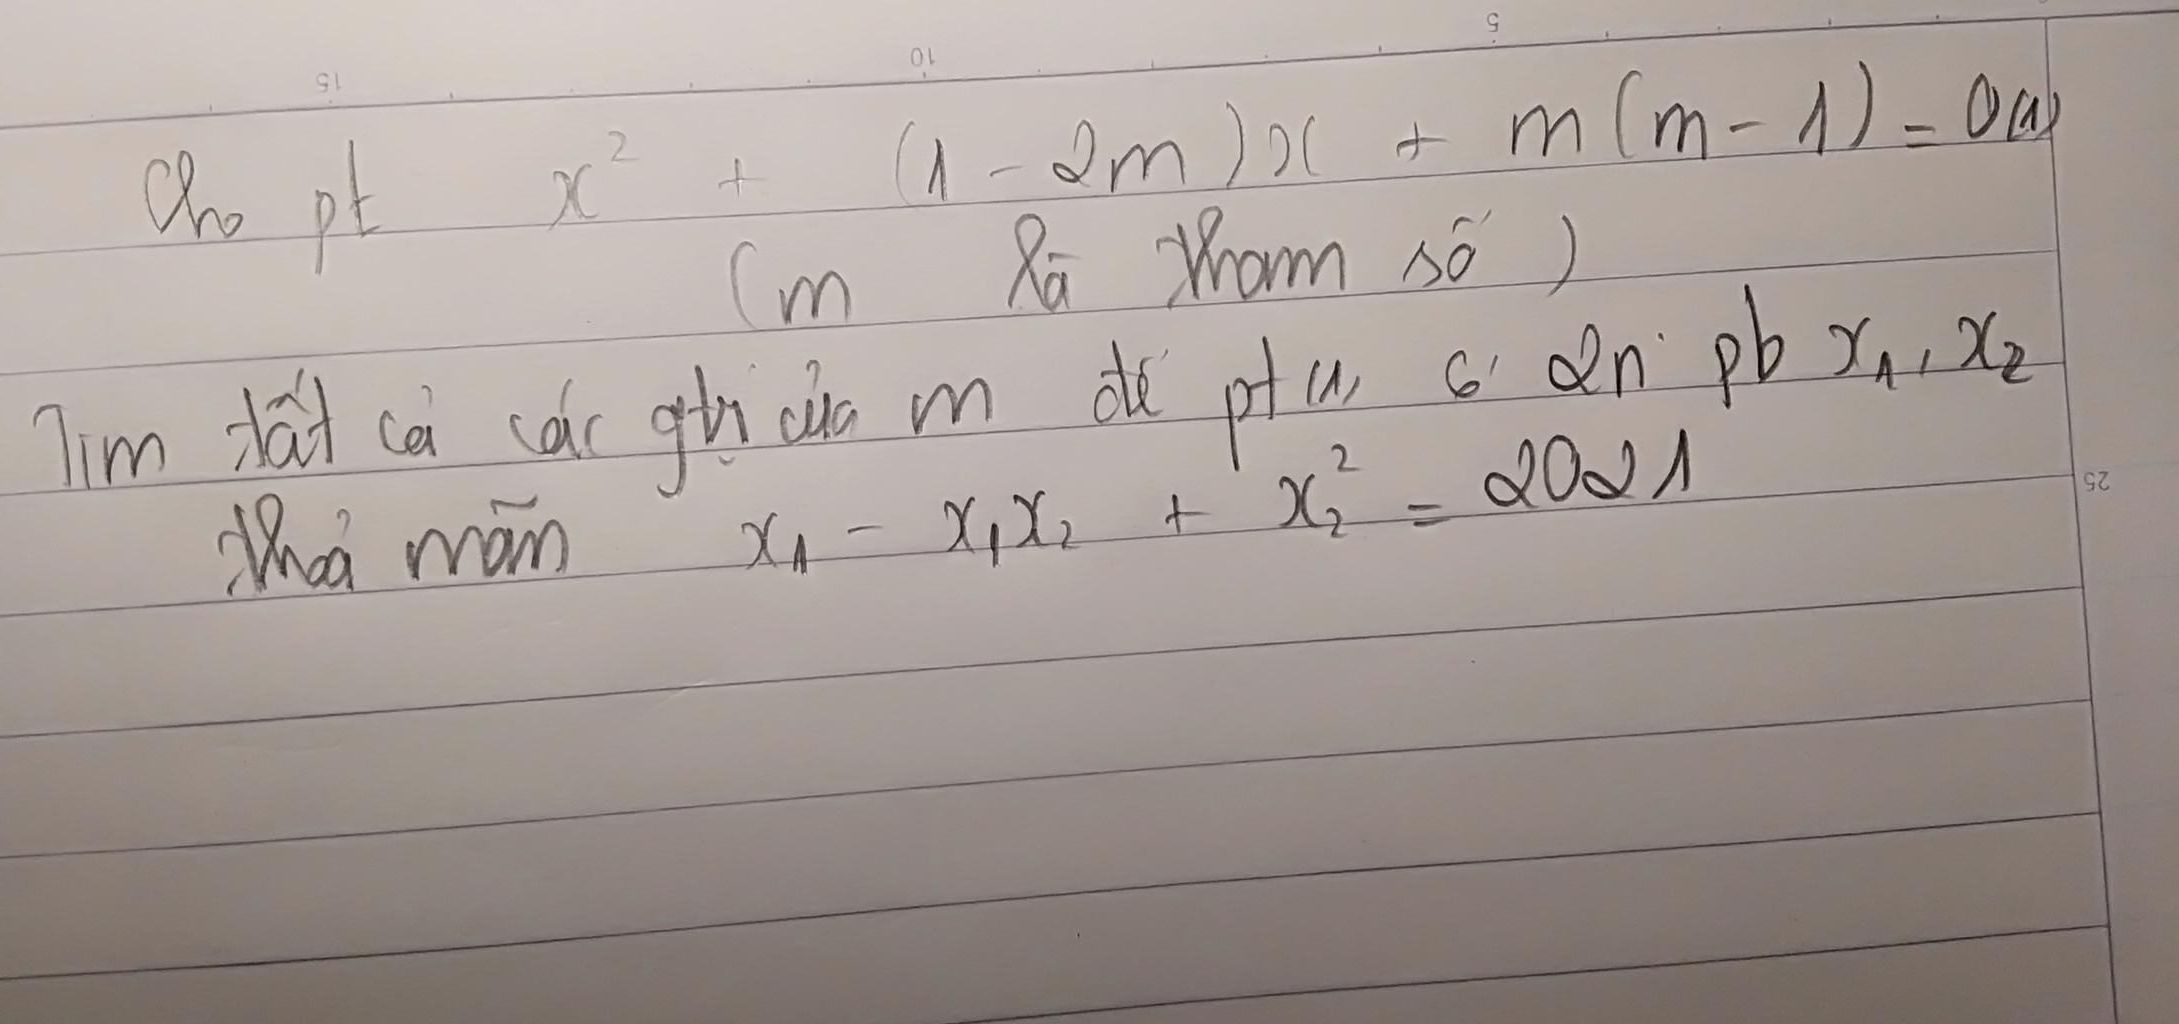 15 10 5
Cho pt x² + (1 - 2m)x + m(m - 1) = 0 (1)
(m là tham số)
Tìm tất cả các gtrị của m để pt (1) có 2n⁰ pb x₁, x₂
thoả mãn x₁ - x₁x₂ + x₂² = 2021
25